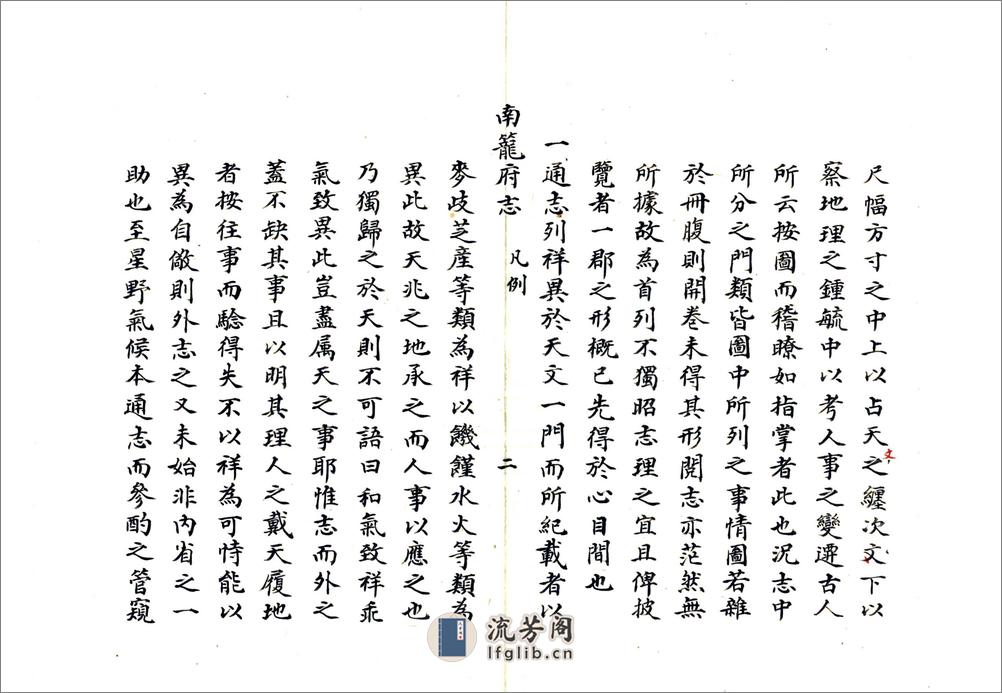 尺幅方寸之中上以占天之文纏次文下以
察地理之鍾毓中以考人事之變遷古人
所云按圖而稽瞭如指掌者此也況志中
所分之門類皆圖中所列之事情圖若雜
於冊腹則開卷未得其形閱志亦茫然無
所據故為首列不獨昭志理之宜且俾披
覽者一郡之形概已先得於心目間也
一通志列祥異於天文一門而所紀載者以
南籠府志 凡例 二
麥歧芝產等類為祥以饑饉水火等類為
異此故天兆之地承之而人事以應之也
乃獨歸之於天則不可語曰和氣致祥乖
氣致異此豈盡属天之事耶惟志而外之
蓋不缺其事且以明其理人之戴天履地
者按往事而騐得失不以祥為可恃能以
異為自儆則外志之又未始非內省之一
助也至星野氣候本通志而參酌之管窺
流芳阁
lfglib.cn